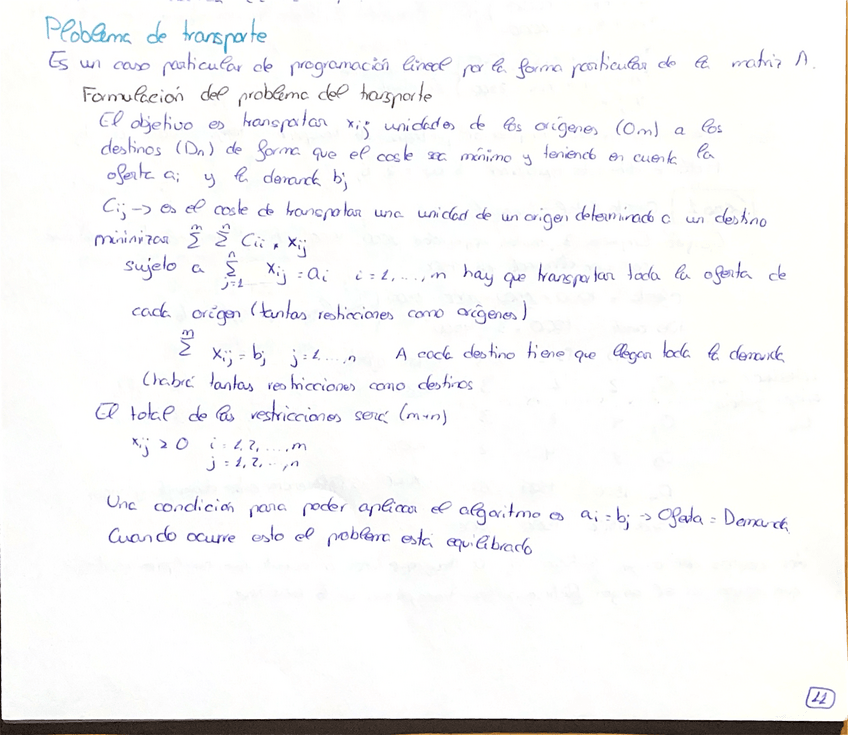 Problema de transporte
Es un caso particular de programación lineal por la forma particular de la matriz A.
Formulación del problema del transporte
El objetivo es transportar xij unidades de los orígenes (Om) a los
destinos (Dn) de forma que el coste sea mínimo y teniendo en cuenta la
oferta ai y la demanda bj
Cij → es el coste de transportar una unidad de un origen determinado a un destino
minimizar m∑ n∑ Cij * xij
sujeto a n∑j=1 xij = ai i = 1, ..., m hay que transportar toda la oferta de
cada origen (tantas restricciones como orígenes)
m∑ xij = bj j = 1 ... n A cada destino tiene que llegar toda la demanda
(habrá tantas restricciones como destinos
El total de las restricciones será (m+n)
xij ≥ 0 i = 1, 2, ..., m
j = 1, 2, ..., n
Una condición para poder aplicar el algoritmo es ai = bj → Oferta = Demanda
Cuando ocurre esto el problema está equilibrado
11